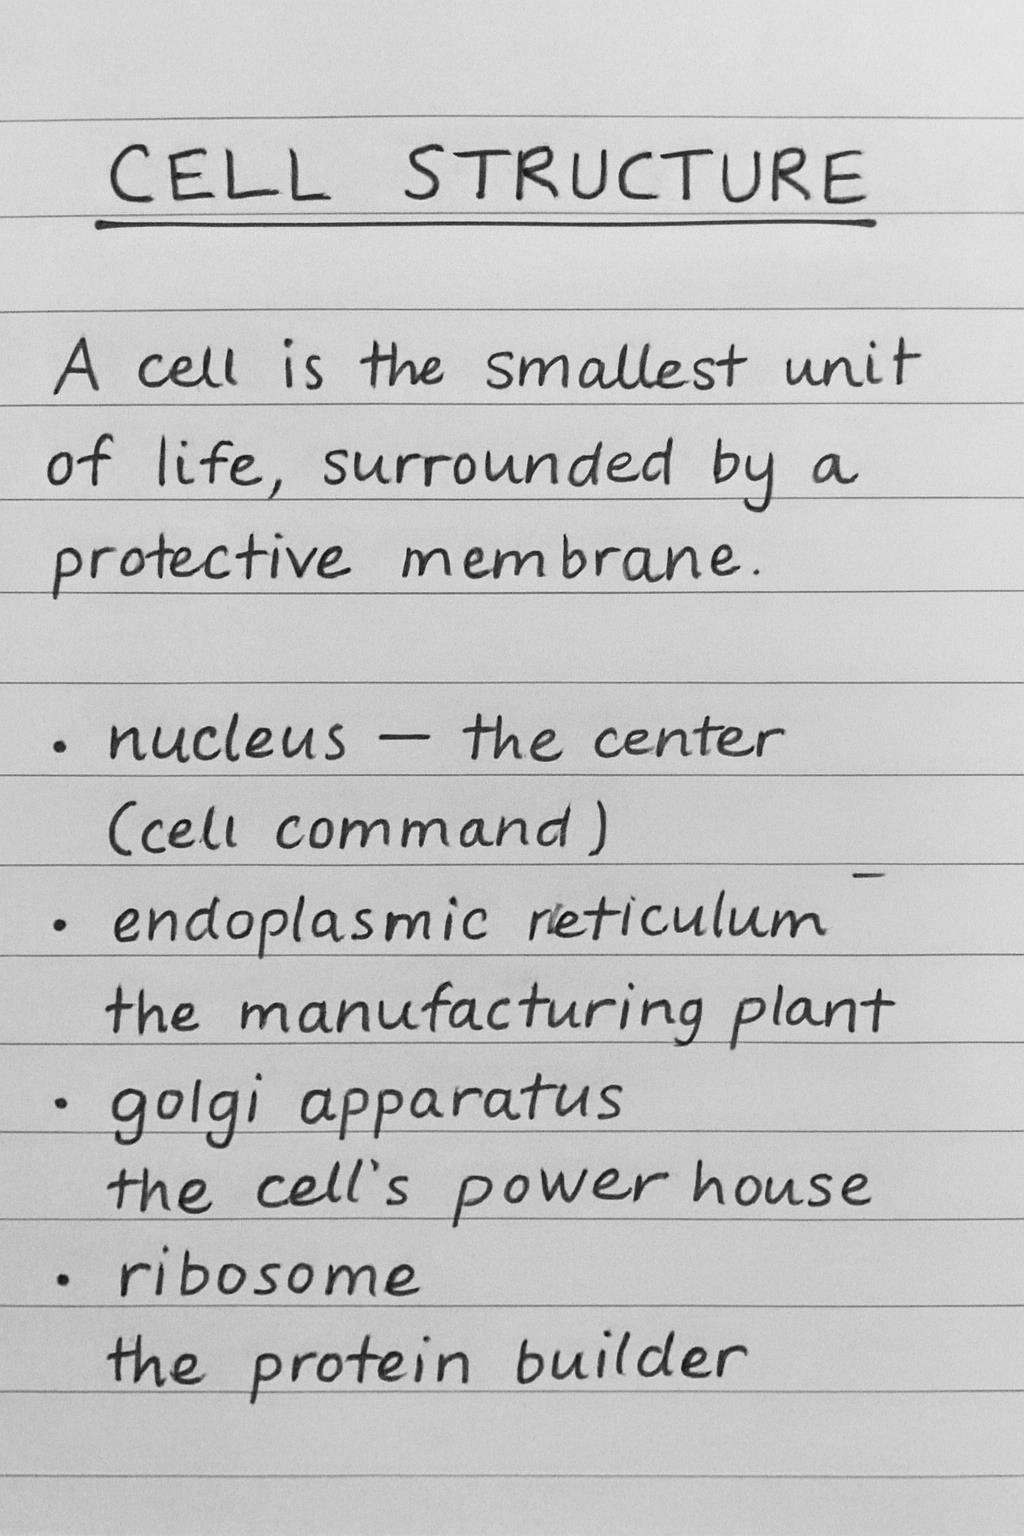 CELL STRUCTURE
A cell is the smallest unit
of life, surrounded by a
protective membrane.
• nucleus — the center
(cell command)
• endoplasmic reticulum —
the manufacturing plant
• golgi apparatus
the cell's power house
• ribosome
the protein builder